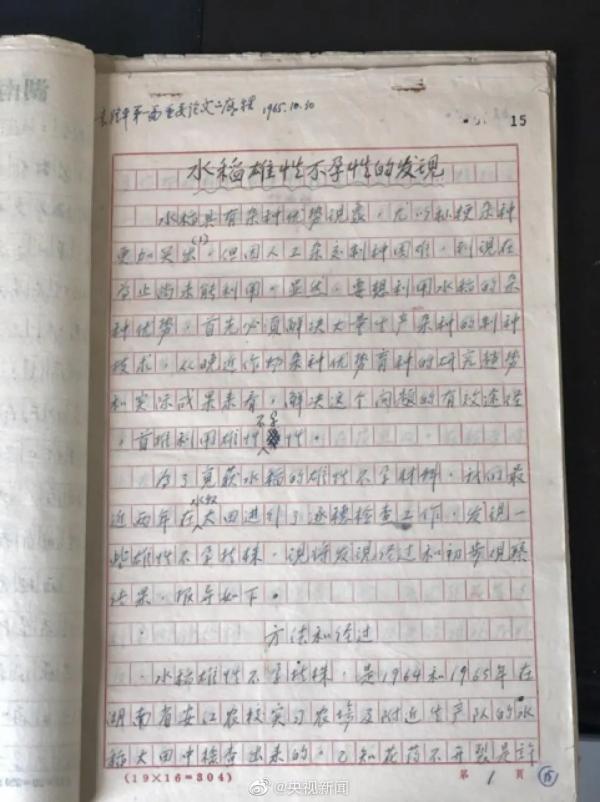 湖南
袁隆平第一篇重要论文之底稿 1965.10.30
15
水稻雄性不孕性的发现
水稻具有杂种优势现象，尤以籼粳杂种
更加突出(1)。但因人工杂交制种困难，到现在
为止尚未能利用。显然，要想利用水稻的杂
种优势，首先必须解决大量生产杂种的制种
技术，从晚近作物杂种优势育种的研究趋势
和实际成果来看，解决这个问题的有效途径
，首推利用雄性不孕性。
为了觅获水稻的雄性不孕材料，我们最
近两年在水稻大田进行了逐穗检查工作，发现一
些雄性不孕植株，现将发现经过和初步观察
结果，报导如下。
方法和经过
水稻雄性不孕植株，是1964和1965年在
湖南省安江农校实习农场及附近生产队的水
稻大田中检查出来的。已知花药不开裂是许
(19×16=304)
第 1 页
15
@央视新闻